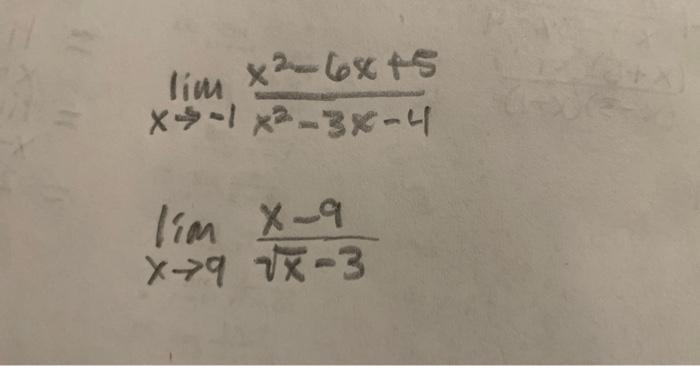 lim x²-6x+5
x→-1 x²-3x-4
lim x-9
x→9 √x-3